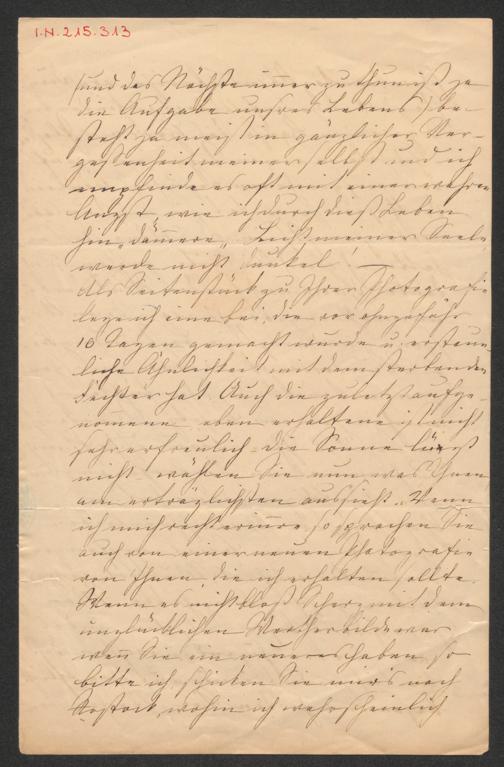 I.N. 215.313
(und das Nächste immer zu thun ist ja
die Aufgabe unsres Lebens) be-
steht ja meist in gänzlicher Ver-
gessenheit meiner selbst und ich
empfinde es oft mit einer wahren
Angst, wie ich durch dieß Leben
hin „dämmere“. Licht meiner Seele
werde nicht dunkel! —
Als Seitenstück zu Ihrer Photografie
lege ich eine bei, die vor ohngefähr
10 Tagen gemacht wurde u. erstaun-
liche Ähnlichkeit mit dem sterbenden
Fechter hat. Auch die zuletzt aufge-
nommene eben erhaltene ist nicht
sehr erfreulich – die Sonne lügt
nicht – wählen Sie nun was Ihnen
am erträglichsten aussieht. Wenn
ich mich recht erinnre, so sprachen Sie
auch von einer neuen Photografie
von Ihnen, die ich erhalten sollte.
Wenn es nicht bloß Scherz mit dem
unglücklichen war
wenn Sie ein neueres haben, so
bitte ich, schicken Sie mir's nach
Rostock, wohin ich wahrscheinlich